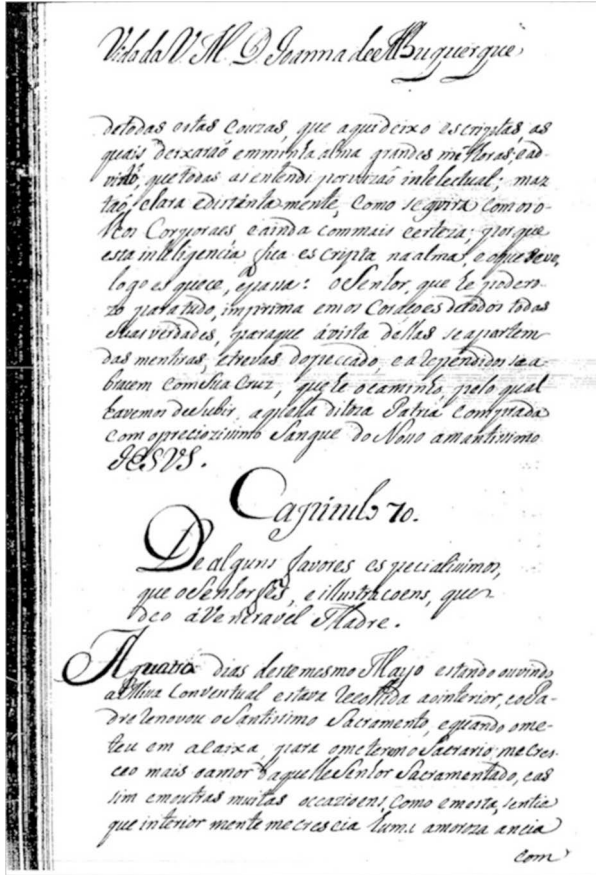 Vida da V. M. D. Joanna de Albuquerque
de todas estas couzas, que aqui deixo escriptas, as
quais deixarão em minha alma grandes melhoras; e ad
virtto, que todas as entendi por vizão intelectual; maz
taõ, clara e distinta mente, como se as vira com os o-
lhos Corporaes e ainda com mais certeza; porque
esta inteligencia fica escripta na alma, e o que se ve,
logo esquece, e passa: o Senhor, que he podero-
zo para tudo, imprima em os Coraçoes de todos todas
suas verdades, para que á vista dellas se apartem
das mentiras, e trevas do peccado, e a Rependidos se a-
bracem com sua Cruz, que he o caminho, pelo qual
havemos de subir, aquella ditoza Patria comprada
com o preciozissimo Sangue do Nosso amantissimo
JESVS.
Capitulo 70.
De alguns favores especialissimos,
que o Senhor fes, e illustraçoens, que
deo á Veneravel Madre.
A quatro dias deste mesmo Mayo estando ouvindo
a Missa Conventual estava recolhida ao interior, e o Pa-
dre renovou o Santissimo Sacramento, e quando o me-
teu em a caixa, para o meter no Sacrario, me cres-
ceo mais o amor daquelle Senhor Sacramentado, e as
sim em outras muitas occazioens, como em esta, sentia
que interior mente me crescia huma amoroza ancia
com